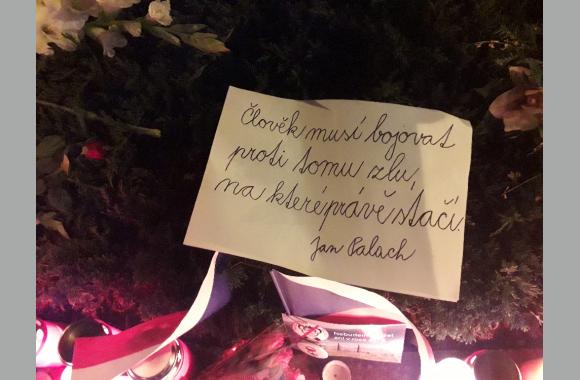 Člověk musí bojovat
proti tomu zlu,
na které právě stačí.
Jan Palach